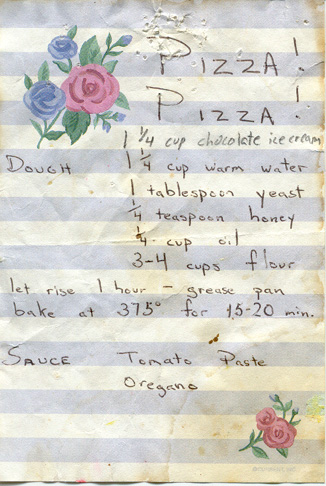 PIZZA!
PIZZA!
1 1/4 cup chocolate ice cream
DOUGH 1 1/4 cup warm water
1 tablespoon yeast
1/4 teaspoon honey
1/4 cup oil
3-4 cups flour
let rise 1 hour - grease pan
bake at 375° for 15-20 min.
SAUCE Tomato Paste
Oregano